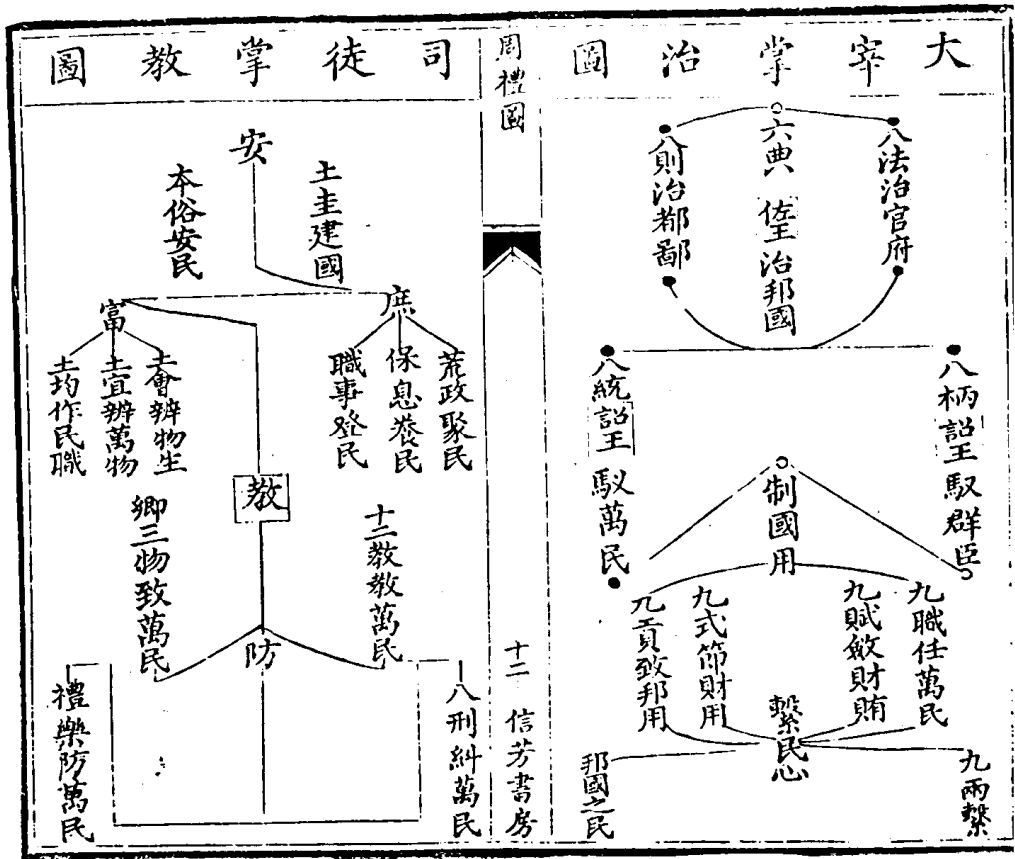 大宰掌治圖
六典佐王治邦國
八法治官府
八則治都鄙
八柄詔王馭群臣
八統詔王馭萬民
制國用
九職任萬民
九賦斂財賄
九式節財用
九貢致邦用
繫民心
九兩繫
邦國之民
周禮圖
十二
信芳書房
司徒掌教圖
安
土圭建國
本俗安民
庶
荒政聚民
保息養民
職事登民
富
土會辨物生
土宜辨萬物
土均作民職
教
十二教教萬民
鄉三物致萬民
防
八刑糾萬民
禮樂防萬民